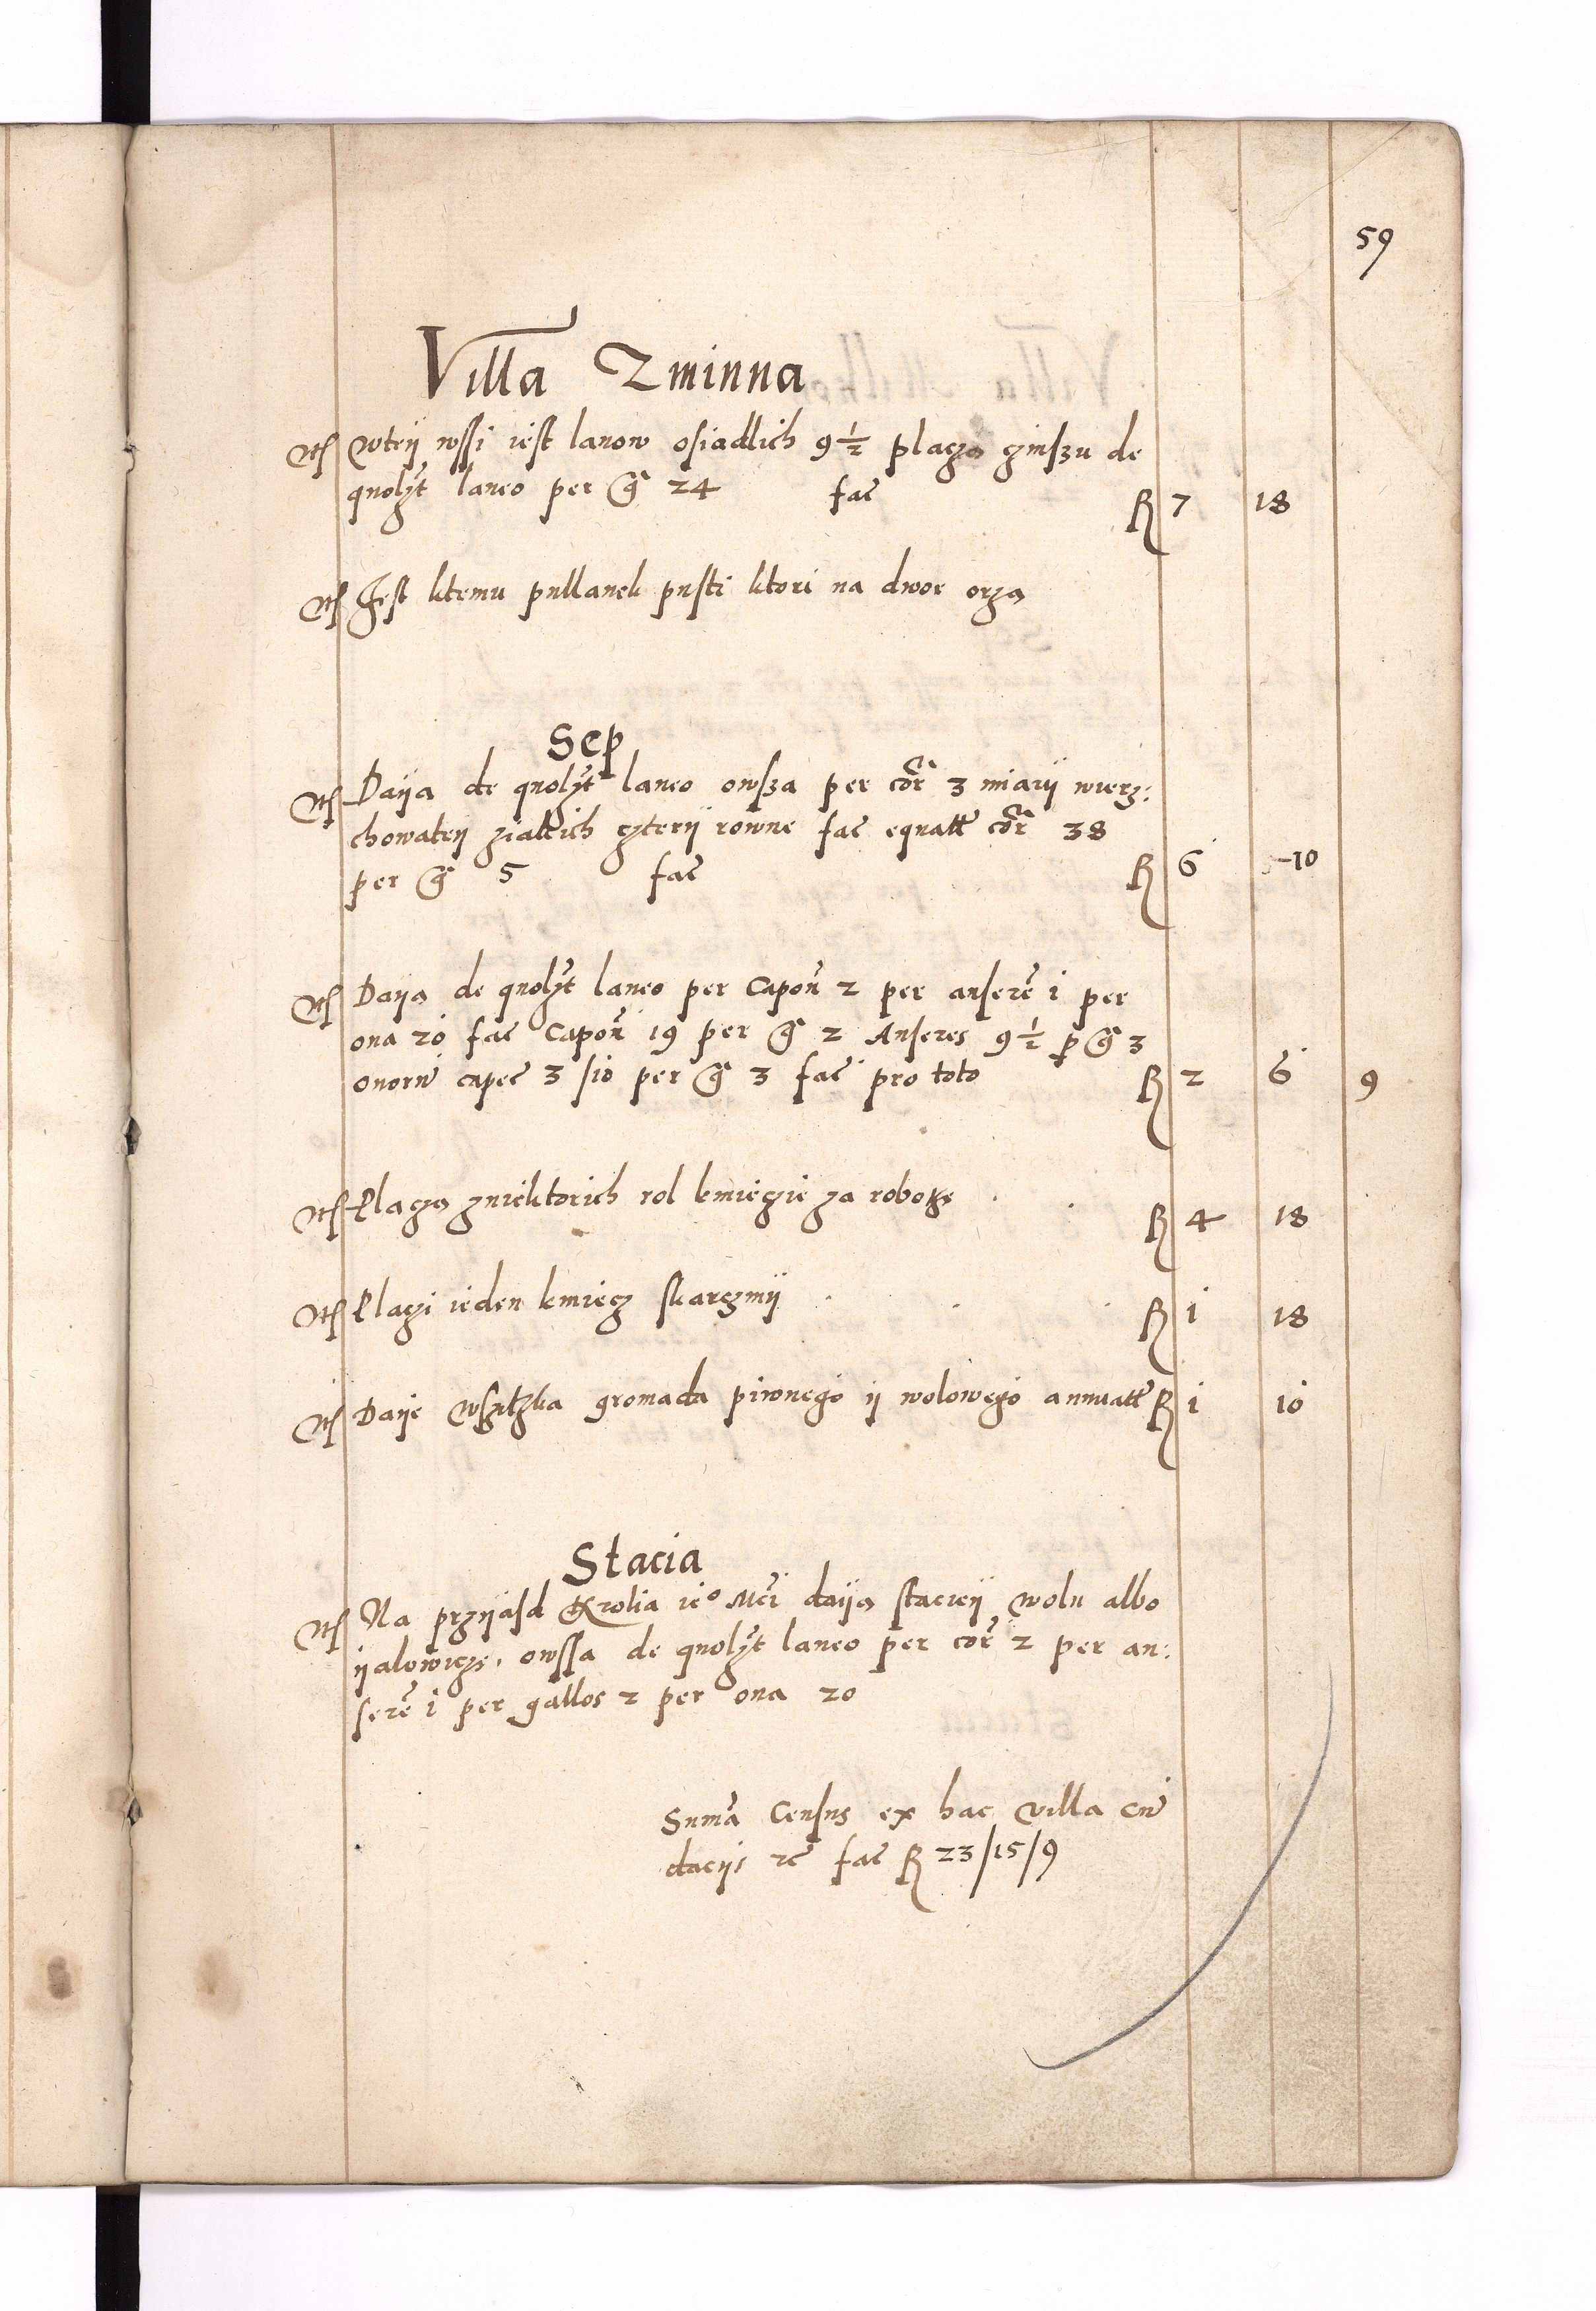 59
Villa Zminna
Itē wteÿ wssi iest lanow osiadlich 9½ placzą czinszu de
quolżt laneo per gr̃ 24 fac̃ R 7 18
Itē Jest ktemu pullanek pusti ktori na dwor orzą
Sep
Itē Daÿa de quolżt laneo owsza per cor̃ 3 miarÿ wierz:
chowateÿ ziakich czterÿ rowne fac̃ equatt cor̃ 38
per gr̃ 5 fac̃ R 6 -10
Itē Daÿą de quolżt laneo per Capoñ 2 per anserẽ 1 per
oua 20 fac̃ Capoñ 19 per gr̃ 2 Anseres 9½ p gr̃ 3
ouorũ capec̃ 3 sio per gr̃ 3 fac̃ pro toto R 2 6 9
Itē Placzą zniektorich rol kmieczie za robotę R 4 18
Itē Placzi ieden kmiecz skarczmÿ R 1 18
Itē Daÿe wszitzka gromada piwnego ÿ wolowego annuatt R 1 10
Stacia
Itē Na przÿasd Krolia ieo Mci daÿą stacieÿ wolu albo
ÿalowiczę, owssa de quolżt laneo per cor̃ 2 per an:
serẽ 1 per gallos 2 per oua 20
Sum̃a Census ex hac villa cũ
dacijs rc̃ fac̃ R 23/15/9